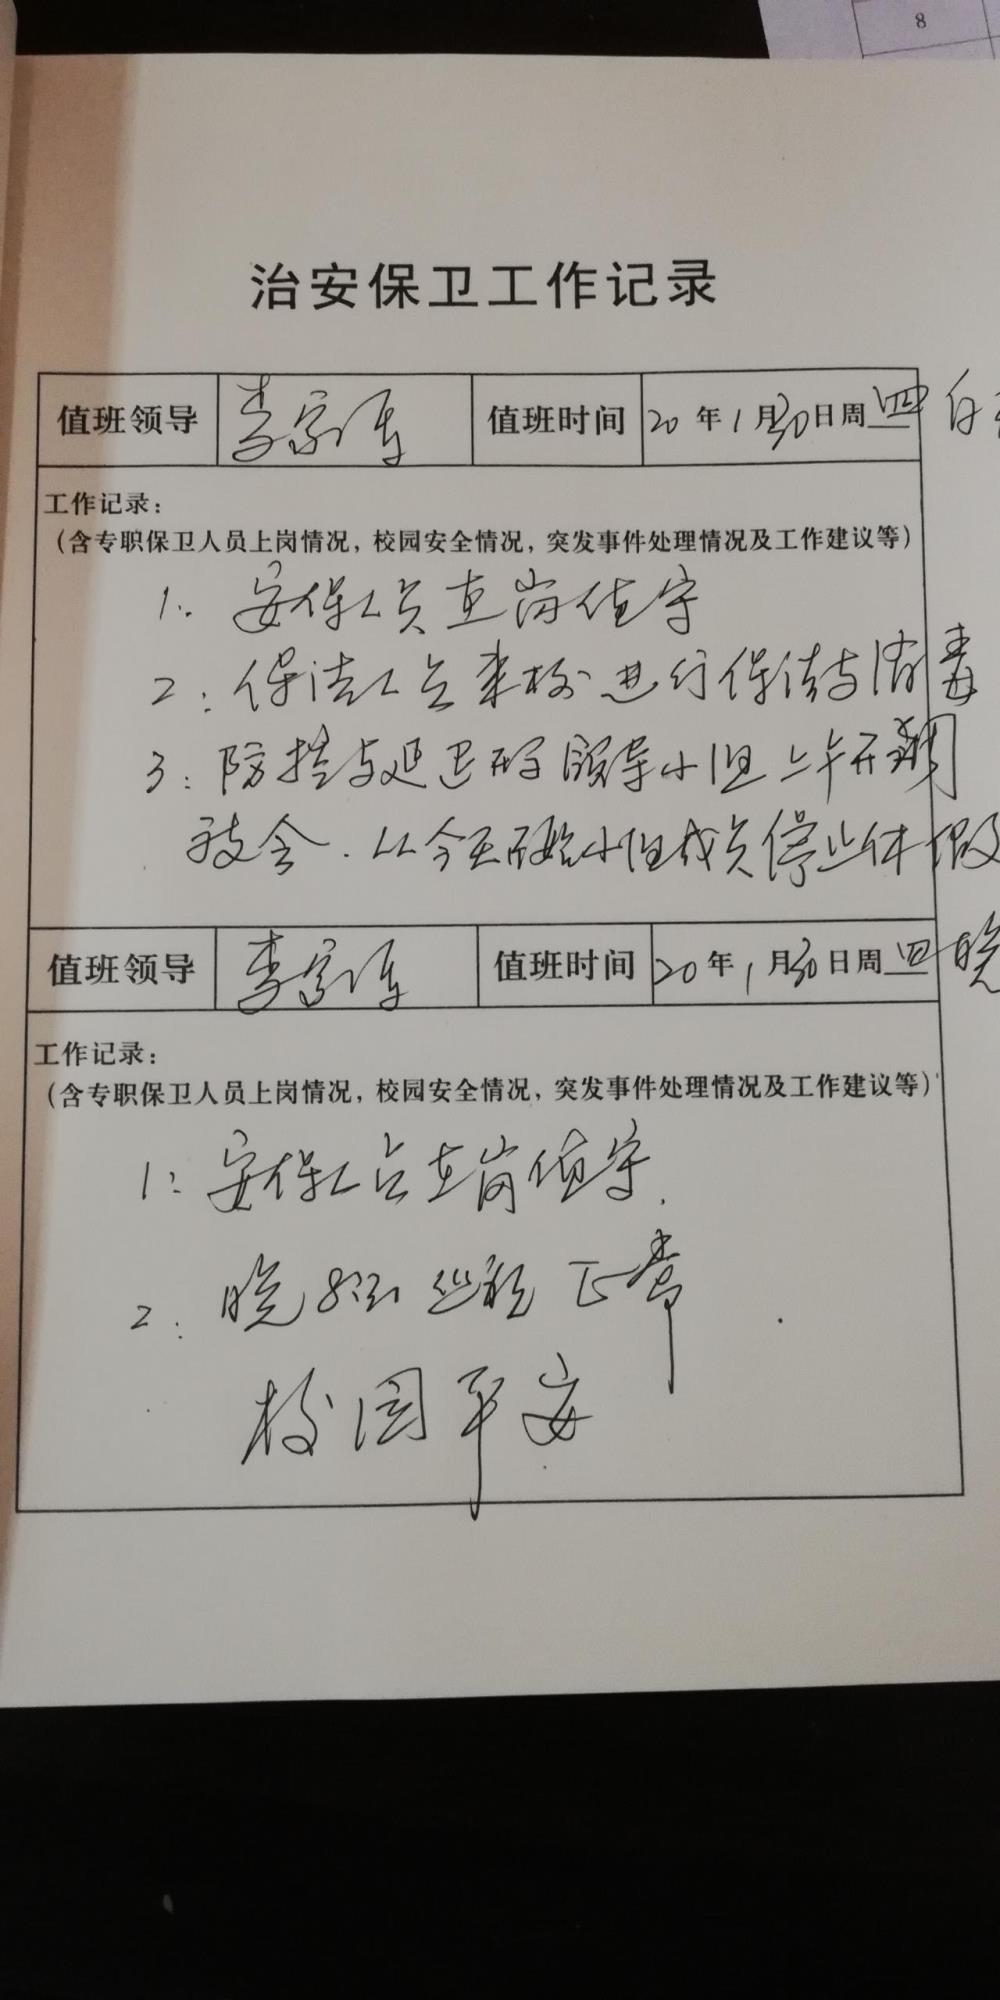 8
治安保卫工作记录
值班领导 李家连 值班时间 20年1月30日周四 白
工作记录:
(含专职保卫人员上岗情况,校园安全情况,突发事件处理情况及工作建议等)
1: 安保人员在岗值守
2: 保洁人员来校进行保洁与消毒
3: 防控与延迟开学领导小组上午开
会. 从今天开始小组成员停止休假
值班领导 李家连 值班时间 20年1月30日周四 晚
工作记录:
(含专职保卫人员上岗情况,校园安全情况,突发事件处理情况及工作建议等)
1: 安保人员在岗值守.
2: 晚 巡视正常
校园平安